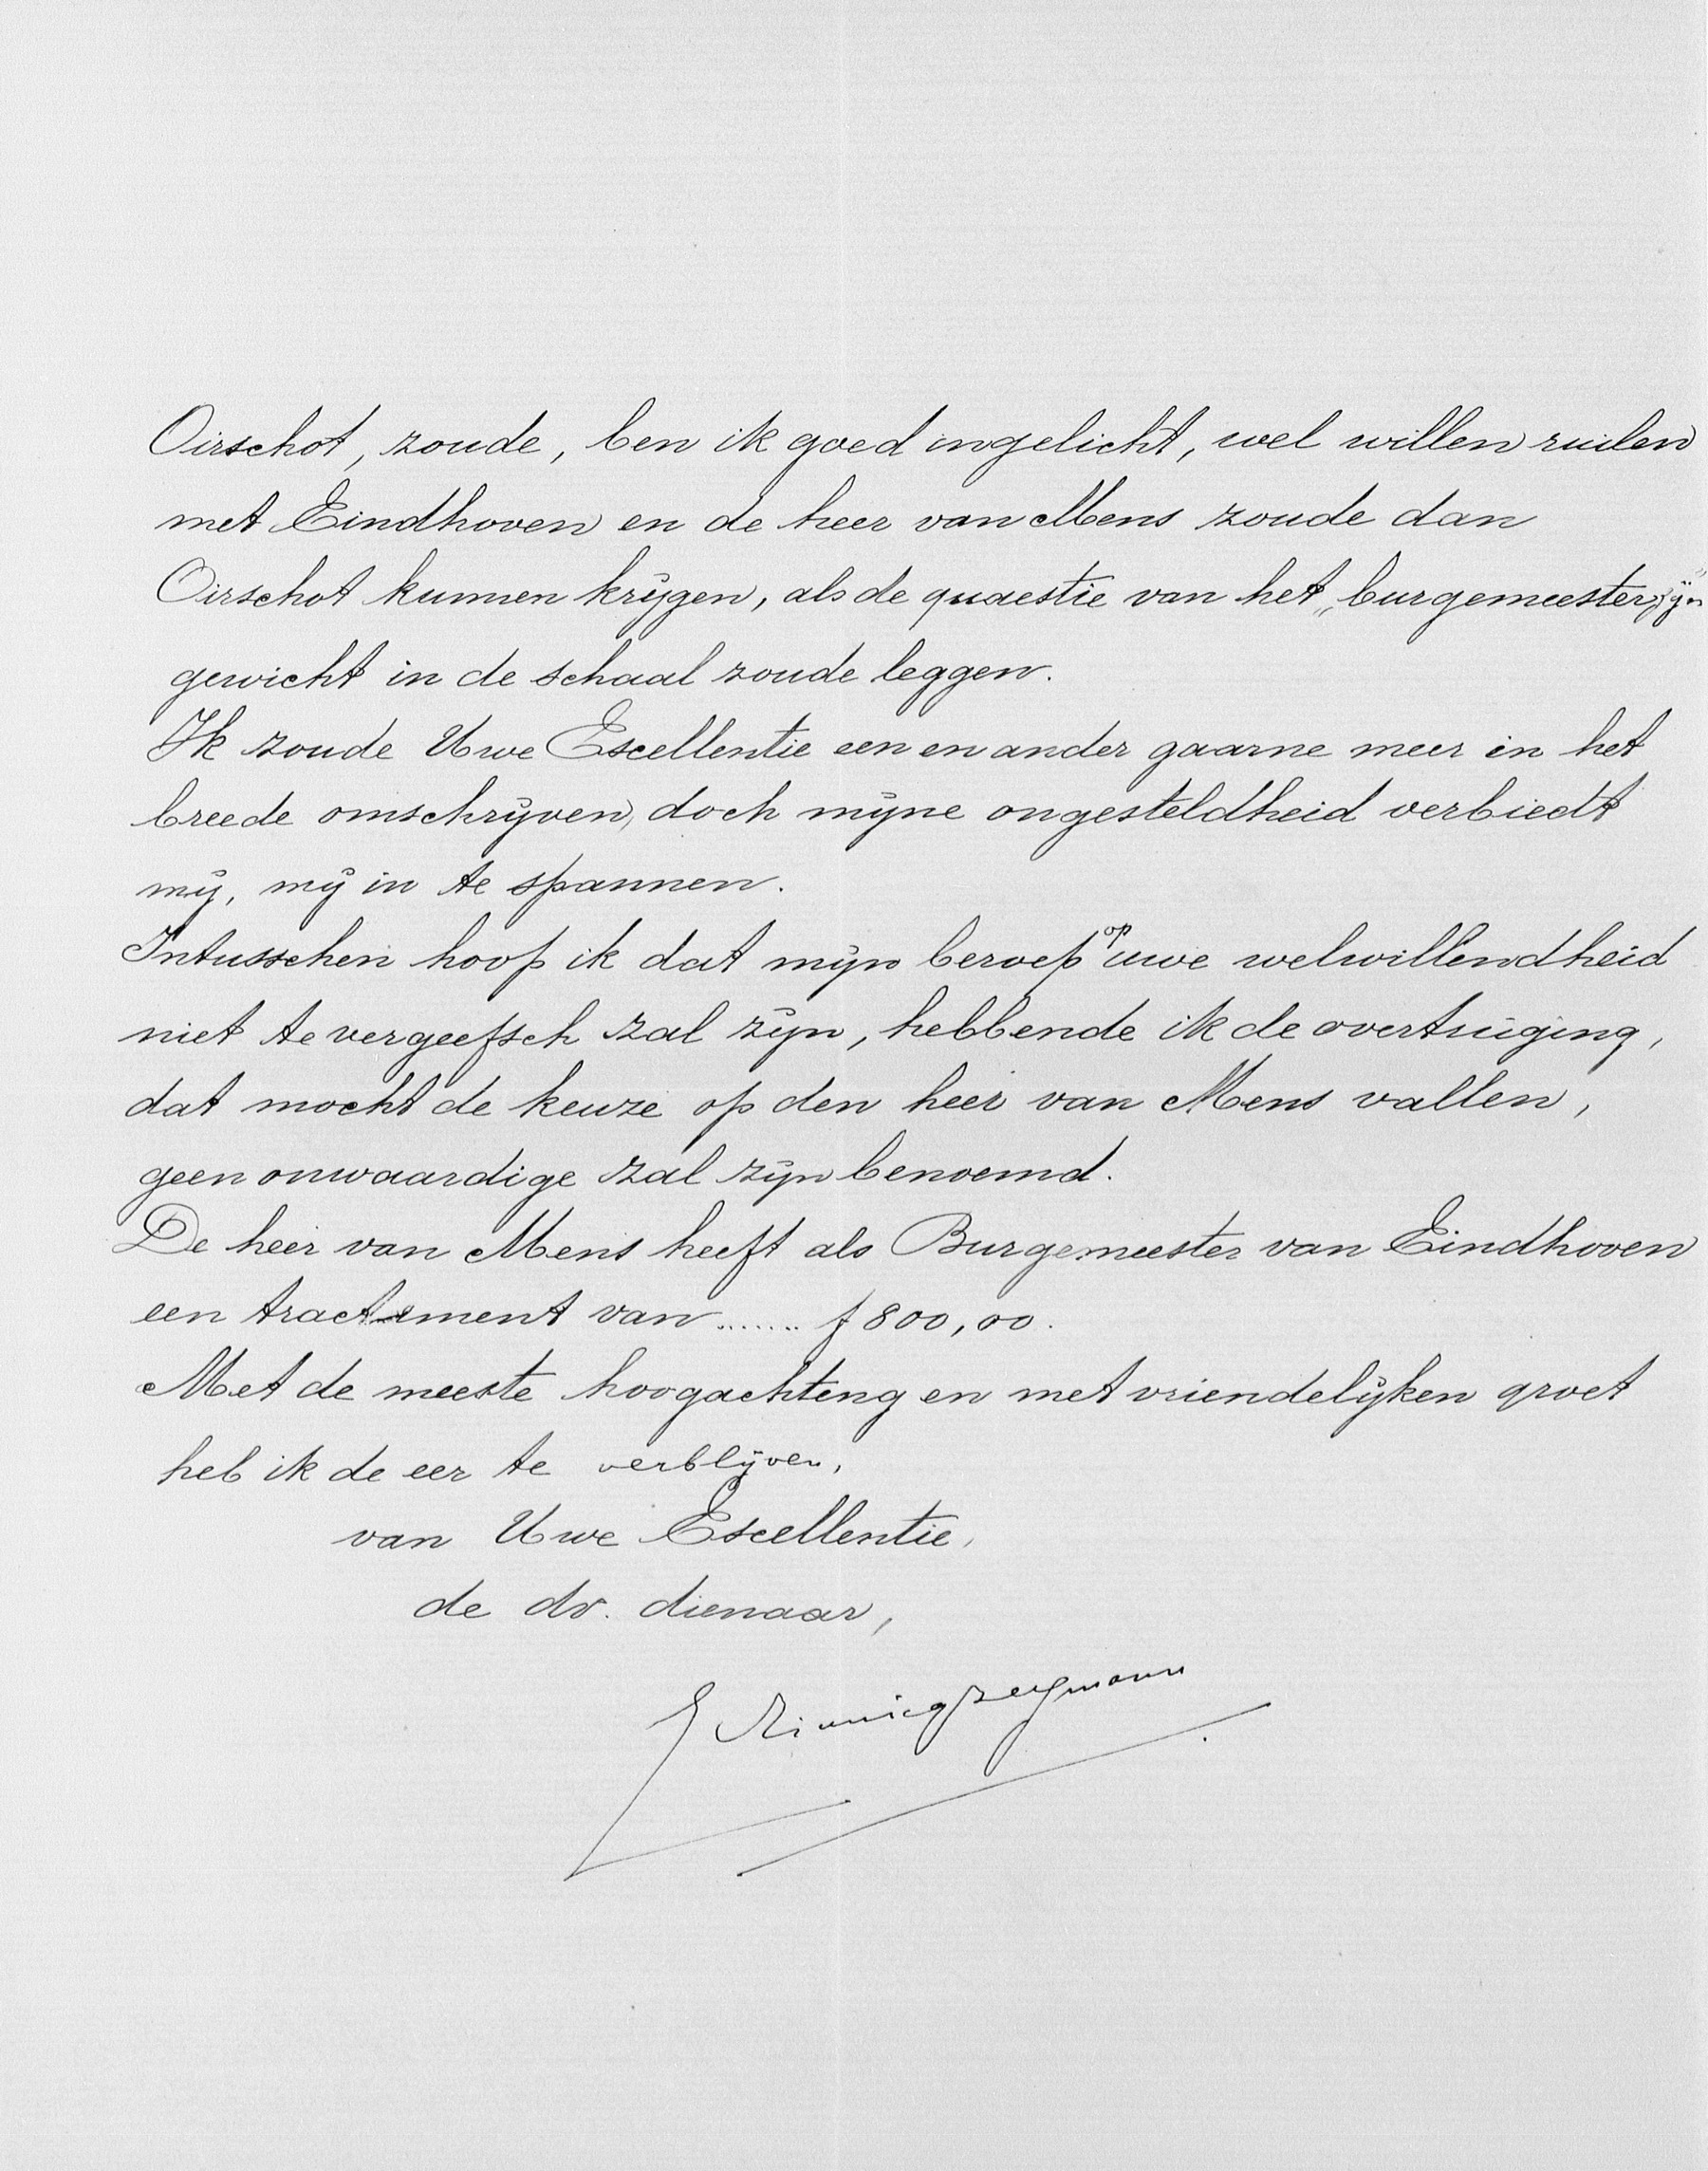 Oirschot, zoude, ben ik goed ingelicht, wel willen ruilen
met Eindhoven en de heer van Mens zoude dan
Oirschot kunnen krijgen, als de quaestie van het „burgemeesterzijn"
gewicht in de schaal zoude leggen.
Ik zoude Uwe Excellentie een en ander gaarne meer in het
breede omschrijven, doch mijne ongesteldheid verbiedt
mij, mij in te spannen.
Intusschen hoop ik dat mijn beroep op uwe welwillendheid
niet te vergeefsch zal zijn, hebbende ik de overtuiging,
dat mocht de keuze op den heer van Mens vallen,
geen onwaardige zal zijn benoemd.
De heer van Mens heeft als Burgemeester van Eindhoven
een tractement van ....... f 800,00.
Met de meeste hoogachting en met vriendelijken groet
heb ik de eer te verblijven,
van Uwe Excellentie,
de dv. dienaar,